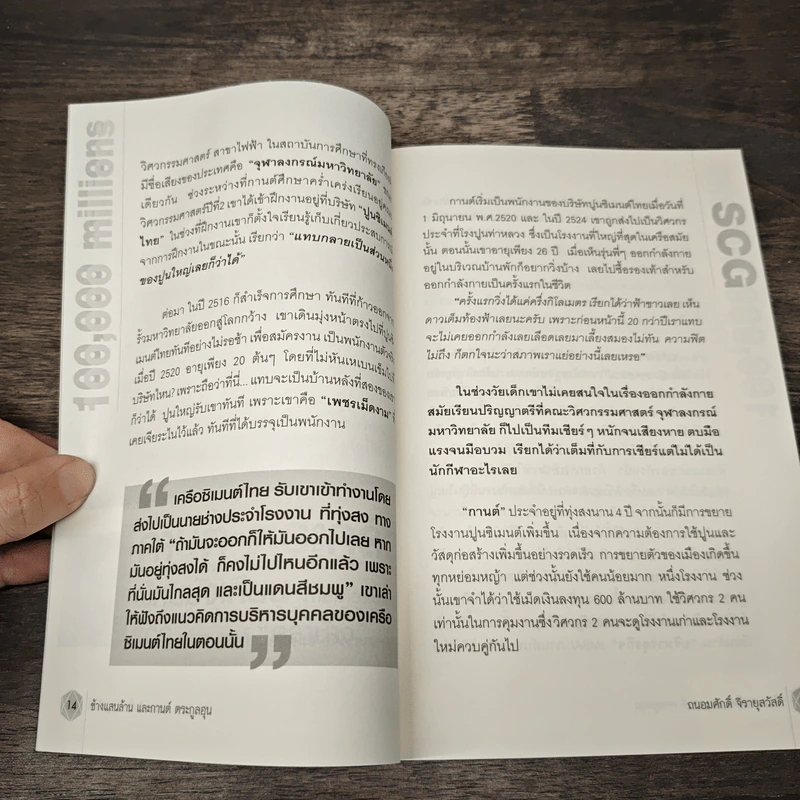 100,000 millions
วิศวกรรมศาสตร์ สาขาไฟฟ้า ในสถาบันการศึกษาที่
มีชื่อเสียงของประเทศคือ “จุฬาลงกรณ์มหาวิทยาลัย”
เดียวกัน ช่วงระหว่างที่กานต์ศึกษาคร่ำเคร่งเรียนอยู่
วิศวกรรมศาสตร์ปีที่2 เขาได้เข้าฝึกงานอยู่ที่บริษัท “ปูนซิเมนต์
ไทย” ในช่วงที่ฝึกงานเขาก็ตั้งใจเรียนรู้เก็บเกี่ยวประสบการณ์
จากการฝึกงานในขณะนั้น เรียกว่า “แทบกลายเป็นส่วนหนึ่ง
ของปูนใหญ่เลยก็ว่าได้”
ต่อมา ในปี 2516 ก็สำเร็จการศึกษา ทันทีที่ก้าวออกจาก
รั้วมหาวิทยาลัยออกสู่โลกกว้าง เขาเดินมุ่งหน้าตรงไปที่
เมนต์ไทยทันทีอย่างไม่รอช้า เพื่อสมัครงาน เป็นพนักงาน
เมื่อปี 2520 อายุเพียง 20 ต้นๆ โดยที่ไม่หันเหเบนเข็มไป
บริษัทไหน? เพราะถือว่าที่นี่... แทบจะเป็นบ้านหลังที่สองของ
ก็ว่าได้ ปูนใหญ่รับเขาทันที เพราะเขาคือ “เพชรเม็ดงาม”
เคยเจียระไนไว้แล้ว ทันทีที่ได้บรรจุเป็นพนักงาน
“ เครือซิเมนต์ไทย รับเขาเข้าทำงานโดย
ส่งไปเป็นนายช่างประจำโรงงาน ที่ทุ่งสง ทาง
ภาคใต้ “ถ้ามันจะออกก็ให้มันออกไปเลย หาก
มันอยู่ทุ่งสงได้ ก็คงไม่ไปไหนอีกแล้ว เพราะ
ที่นั่นมันไกลสุด และเป็นแดนสีชมพู” เขาเล่า
ให้ฟังถึงแนวคิดการบริหารบุคคลของเครือ
ซิเมนต์ไทยในตอนนั้น ”
14 ช้างแสนล้าน และกานต์ ตระกูลฮุน
SCG
กานต์เริ่มเป็นพนักงานของบริษัทปูนซิเมนต์ไทยเมื่อวันที่
1 มิถุนายน พ.ศ.2520 และ ในปี 2524 เขาถูกส่งไปเป็นวิศวกร
ประจำที่โรงปูนท่าหลวง ซึ่งเป็นโรงงานที่ใหญ่ที่สุดในเครือสมัย
นั้น ตอนนั้นเขาอายุเพียง 26 ปี เมื่อเห็นรุ่นพี่ๆ ออกกำลังกาย
อยู่ในบริเวณบ้านพักก็อยากวิ่งบ้าง เลยไปซื้อรองเท้าสำหรับ
ออกกำลังกายเป็นครั้งแรกในชีวิต
“ครั้งแรกวิ่งได้แค่ครึ่งกิโลเมตร เรียกได้ว่าฟ้าขาวเลย เห็น
ดาวเต็มท้องฟ้าเลยนะครับ เพราะก่อนหน้านี้ 20 กว่าปีเราแทบ
จะไม่เคยออกกำลังเลยเลือดเลยมาเลี้ยงสมองไม่ทัน ความฟิต
ไม่ถึง ก็ตกใจนะว่าสภาพเราแย่อย่างนี้เลยเหรอ”
ในช่วงวัยเด็กเขาไม่เคยสนใจในเรื่องออกกำลังกาย
สมัยเรียนปริญญาตรีที่คณะวิศวกรรมศาสตร์ จุฬาลงกรณ์
มหาวิทยาลัย ก็ไปเป็นทีมเชียร์ๆ หนักจนเสียงหาย ตบมือ
แรงจนมือบวม เรียกได้ว่าเต็มที่กับการเชียร์แต่ไม่ได้เป็น
นักกีฬาอะไรเลย
“กานต์” ประจำอยู่ที่ทุ่งสงนาน 4 ปี จากนั้นก็มีการขยาย
โรงงานปูนซิเมนต์เพิ่มขึ้น เนื่องจากความต้องการใช้ปูนและ
วัสดุก่อสร้างเพิ่มขึ้นอย่างรวดเร็ว การขยายตัวของเมืองเกิดขึ้น
ทุกหย่อมหญ้า แต่ช่วงนั้นยังใช้คนน้อยมาก หนึ่งโรงงาน ช่วง
นั้นเขาจำได้ว่าใช้เม็ดเงินลงทุน 600 ล้านบาท ใช้วิศวกร 2 คน
เท่านั้นในการคุมงานซึ่งวิศวกร 2 คนจะดูโรงงานเก่าและโรงงาน
ใหม่ควบคู่กันไป
ถนอมศักดิ์ จิรายุสวัสดิ์